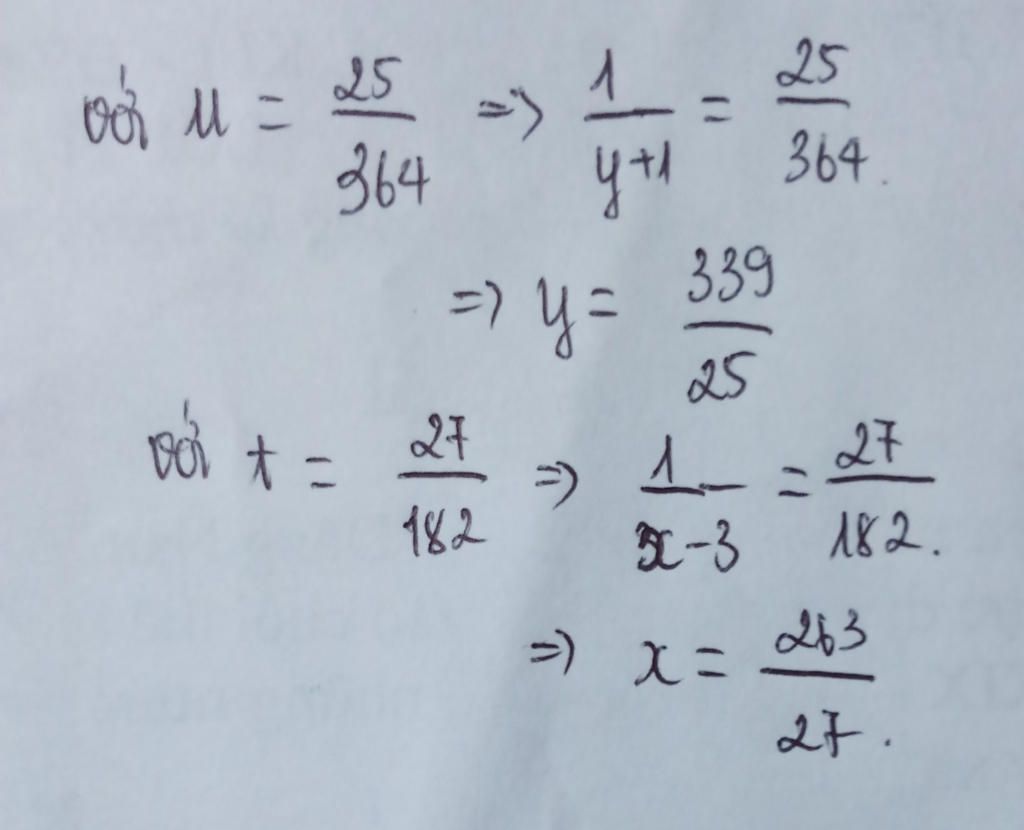 với u = 25/364 => 1/(y+1) = 25/364.
=> y = 339/25
với t = 27/182 => 1/(x-3) = 27/182.
=> x = 263/27.